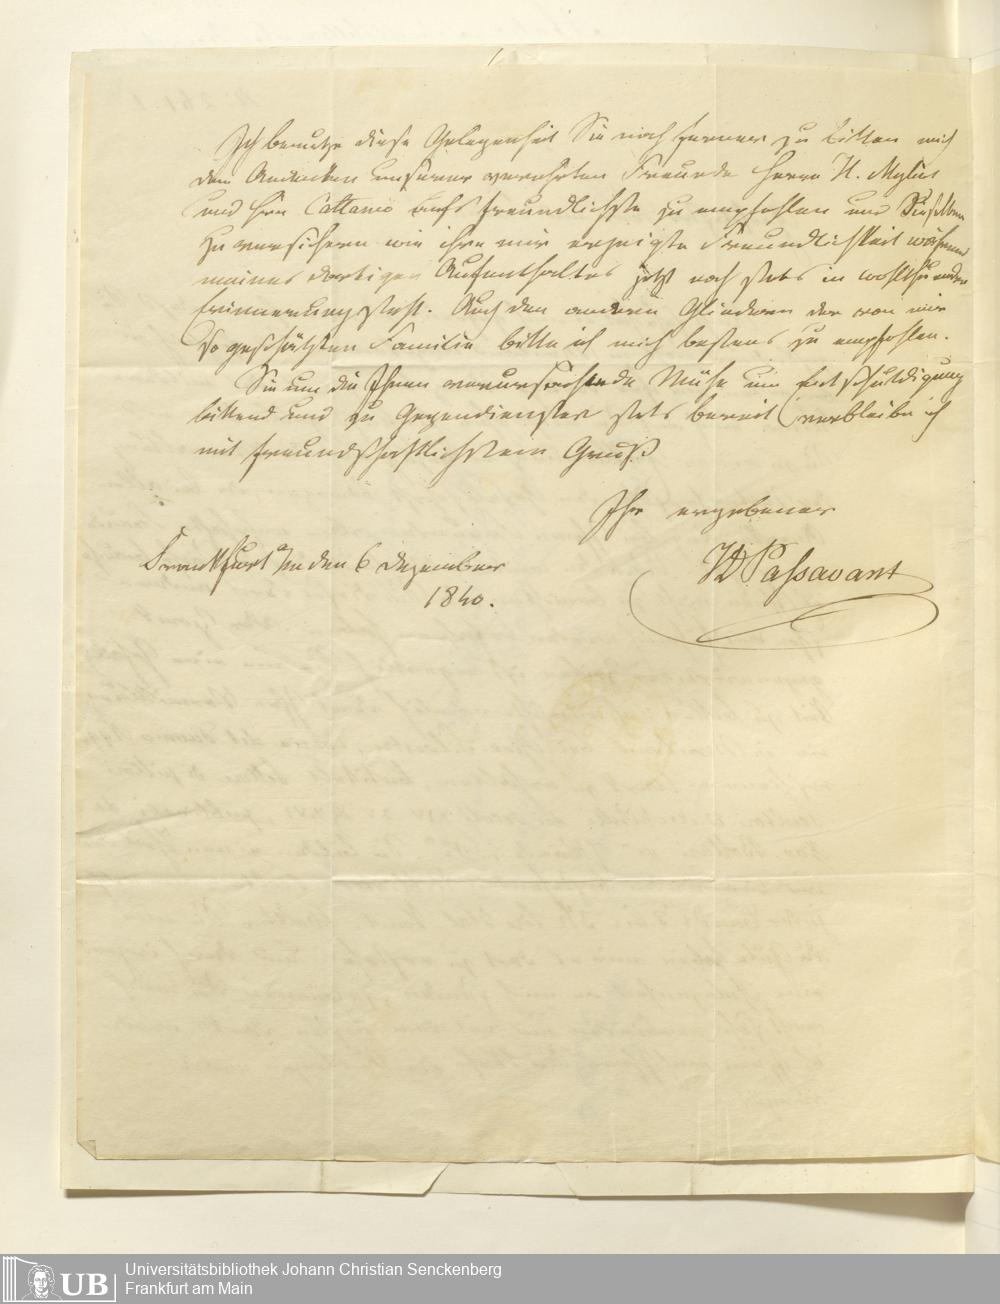 Ich benutze diese Gelegenheit Sie noch ferner zu bitten mich
dem Andenken unserer verehrten Freunde Herrn H. Mylius
und Hrn Cattaneo aufs freundlichste zu empfehlen und Dieselben
zu versichern wie ihre mir erzeigte Freundlichkeit während
meines dortigen Aufenthaltes jetzt noch stets in wohlthuender
Erinnerung steht. Auch den andern Gliedern der von mir
so geschätzten Familie bitte ich mich bestens zu empfehlen.
Sie um die Ihnen verursachende Mühe um Entschuldigung
bittend und zu Gegendiensten stets bereit verbleibe ich
mit freundschaftlichstem Gruß
Ihr ergebener
Frankfurt a/m den 6 Dezember
1840.
JD Passavant
UB
Universitätsbibliothek Johann Christian Senckenberg
Frankfurt am Main